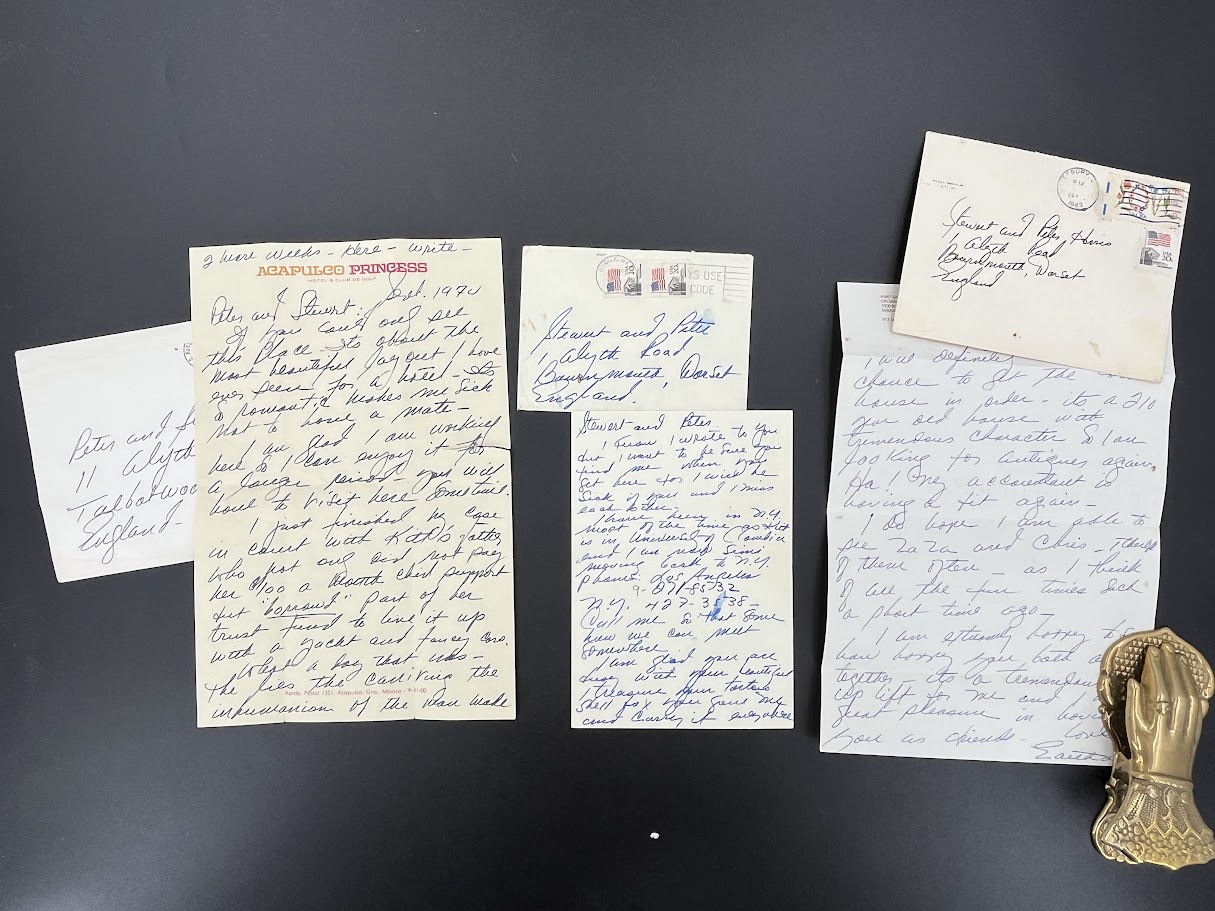 Peter and
11 Alyth
Talbotwoo
England-
2 more weeks - Here - write -
ACAPULCO PRINCESS
HOTEL & CLUB DE GOLF
Sept. 1974
Peter and Stewart:
If you could only see
this place - its about the
most beautiful layout I have
ever seen for a hotel - Its
so romantic makes me sick
not to have a mate -
I am glad I am working
here so I can enjoy it for
a longer period - you will
have to visit here sometime.
I just finished my case
in court with Kitt's father
who not only did not pay
her $100 a month child support
but "borrowed" part of her
trust fund to live it up
with a yacht and fancy cars.
What a boy that was -
the lies the conniving the
inhumanism of the man made
Apdo. Postal 1351, Acapulco, Gro., México - 4-31-00
YS USE
CODE
USA 20c
USA 20c
Stewart and Peter
1 Alyth Road
Bournmouth, Dorset
England.
Stewart and Peter
I know I wrote to you
but I want to be sure you
find me when you
get here for I will be
sick if you and I miss
each other.
I have been in N.Y.
most of the time as
is in University of Columbia
and I am now semi
moving back to N.Y.
phone: Los Angeles
9-
N.Y.
Call me so that some
how we can meet
somewhere
I am glad you are
busy with your beautiful
I treasure your tortoise
shell fox you gave me
and carry it everywhere
1983
USA 20c
Stewart and Peter Harris
1 Alyth Road
Bournmouth, Dorset
England
I will definitely
chance to get the
house in order - its a 210
year old house with
tremendous character so I am
looking for antiques again.
Ha! My accountant is
having a fit again -
I do hope I am able to
see ZaZa and Cris - I think
of them often - as I think
of all the fun times such
a short time ago -
I am extremely happy to
how happy you both
together - its a tremendous
up lift for me and
great pleasure in
you as friends - Love
Eartha